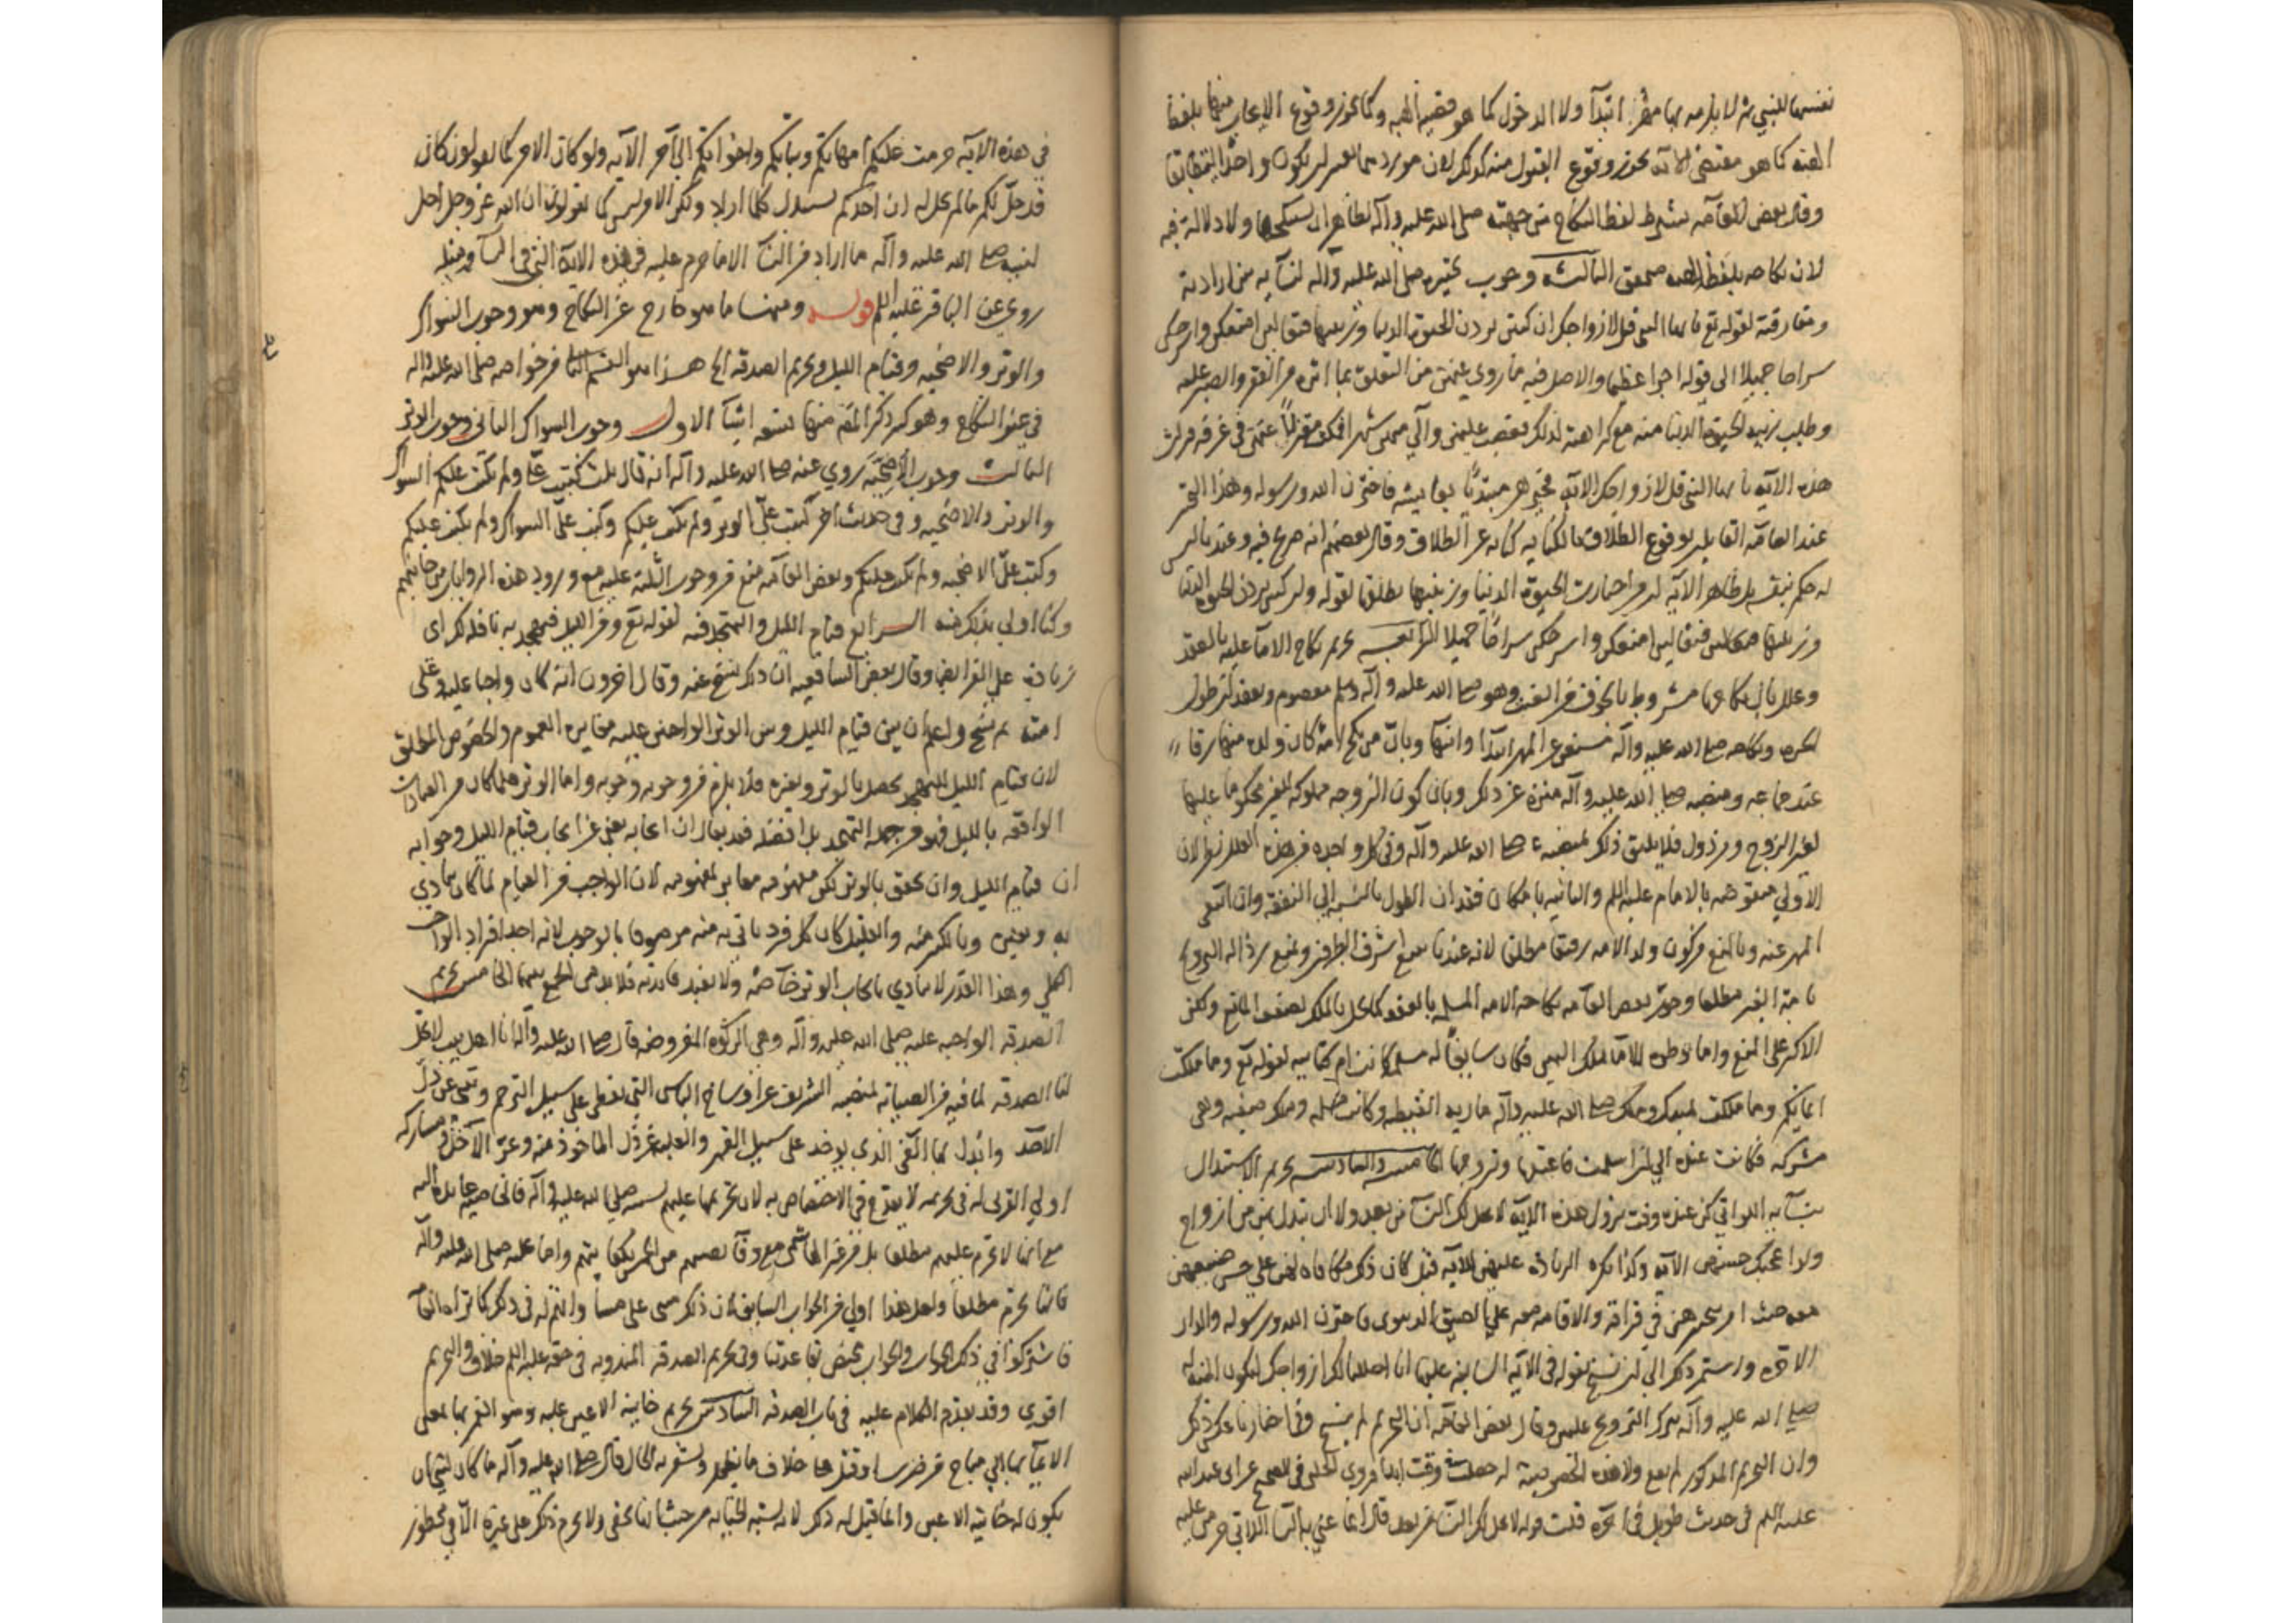 نفسها للنبي لا يلزمه بها مهر ابتدآء ولا بالدخول كما هو قضية الهبة وكما يجوز وقوع الايجاب منها بلفظ
الهبة كما هو مقتضى الآية يجوز وقوع القبول منه كذلك لان موردهما يعتبر ان يكون واحدا ليتطابقا
وقال بعض العامة يشترط لفظ النكاح من جهته صلى الله عليه وآله لظاهر ان يستنكحها ولا دلالة فيه
لان نكاحه بلفظ الهبة صحيح الثالثة وجوب تخييره صلى الله عليه وآله لنسآيه بين ارادته
ومفارقته لقوله تع يا ايها النبي قل لازواجك ان كنتن تردن الحيوة الدنيا وزينتها فتعالين امتعكن واسرحكن
سراحا جميلا الى قوله اجرا عظيما والاصل فيه ما روي من التعلق بما اثره من الفقر والصبر عليه
وطلب زينة الحيوة الدنيا منه مع كراهته لذلك فغضب عليهن وآلى منهن شهرا فمكث معتزلا عنهن في غرفة فنزلت
هذه الآية يا ايها النبي قل لازواجك الآية فخيرهن مبتدئا بعايشة فاخترن الله ورسوله وهذا التخيير
عند العامة القايلين بوقوع الطلاق بالكناية كناية عن الطلاق وقال بعضهم انه صريح فيه وعندنا ليس
له حكم بنفسه بل ظاهر الآية ان من اختارت الحيوة الدنيا وزينتها يطلقها لقوله وان كنتن تردن الحيوة الدنيا
وزينتها فتعالين امتعكن واسرحكن سراحا جميلا الرابعة تحريم نكاح الامآء عليه بالعقد
وعلل بان نكاحها مشروط بالخوف من العنت وهو صلى الله عليه وآله وسلم معصوم وبفقدان طول
الحرة ونكاحه صلى الله عليه وآله مستغن عن المهر ابتدآء وانتهآء وبان من نكح امة كان ولده منها رقا
عند جماعة ومنصبه صلى الله عليه وآله منزه عن ذلك وبان كون الزوجة مملوكة للغير محكوما عليها
لغير الزوج مرذول فلا يليق ذلك بمنصبه صلى الله عليه وآله وفي كل واحدة من هذه العلل نظر لان
الاولى منقوضة بالامام عليه السلم والثانية بامكان فقدان الطول بالنسبة الى النفقة وان انتفى
المهر عنه وبالمنع من كون ولد الامة رقيقا مطلقا لانه عندنا يتبع اشرف الطرفين وبمنع رذالة التزويج
بامة الغير مطلقا وجوز بعض العامة نكاحه الامة المسلمة بالعقد كما يحل بالملك لضعف المانع ولكن
الاكثر على المنع واما وطؤه الامآء بملك اليمين فكان سايغا له مسلمة كانت ام كتابية لقوله تع وما ملكت
ايمانكم وما ملكت يمينك وملك صلى الله عليه وآله مارية القبطية وكانت مسلمة وملك صفية وهي
مشركة فكانت عنده الى ان اسلمت فاعتقها وتزوجها الخامسة والسادسة تحريم الاستبدال
بنسآيه اللواتي كن عنده وقت نزول هذه الآية لا يحل لك النسآء من بعد ولا ان تبدل بهن من ازواج
ولو اعجبك حسنهن الآية وكذا يكره الزيادة عليهن للآية قيل كان ذلك مكافاة لهن على حسن صنيعهن
معه حيث امر بتخييرهن في فراقه والاقامة معه على الضيق الدنيوي فاخترن الله ورسوله والدار
الآخرة واستمر ذلك الى ان نسخ بقوله في الآية السابقة عليها انا احللنا لك ازواجك لتكون المنة له
صلى الله عليه وآله بترك التزويج عليهن وقال بعض العامة ان التحريم لم ينسخ وفي اخبارنا عكس ذلك
وان التحريم المذكور لم يقع ولا هذه الخصوصية له حصلت في وقت ابدا فروى الحلبي في الصحيح عن ابي عبد الله
عليه السلم في حديث طويل في آخره قلت قوله لا يحل لك النسآء من بعد قال انما عنى به النسآء اللاتي حرمن عليه
في هذه الآية حرمت عليكم امهاتكم وبناتكم واخواتكم الى آخر الآية ولو كان الامر كما يقولون كان
قد حل لكم ما لم يحل له ان احدكم يستبدل كلما اراد ولكن الامر ليس كما يقولون ان الله عز وجل احل
لنبيه صلى الله عليه وآله ما اراد من النسآء الا ما حرم عليه في هذه الآية التي في النسآء ومثله
روي عن الباقر عليه السلم قوله ومنها ما هو خارج عن النكاح وهو وجوب السواك
والوتر والاضحية وقيام الليل وتحريم الصدقة الخ هذا هو القسم الثاني من خواصه صلى الله عليه وآله
في غير النكاح وهو كثير ذكر المص منها تسعة اشيآء الاول وجوب السواك الثاني وجوب الوتر
الثالث وجوب الاضحية روي عنه صلى الله عليه وآله انه قال ثلث كتبت علي ولم تكتب عليكم السواك
والوتر والاضحية وفي حديث آخر كتب علي الوتر ولم يكتب عليكم وكتب علي السواك ولم يكتب عليكم
وكتبت علي الاضحية ولم تكتب عليكم وبعض العامة منع من وجوب الثلثة عليه مع ورود هذه الروايات من جانبهم
وكنا اولى بذلك منه الرابع قيام الليل والتهجد فيه لقوله تع ومن الليل فتهجد به نافلة لك اي
زيادة على الفرايض وقال بعض الشافعية ان ذلك نسخ عنه وقال آخرون انه كان واجبا عليه وعلى
امته ثم نسخ واعلم ان بين قيام الليل وبين الوتر الواجبين عليه مغايرة العموم والخصوص المطلق
لان قيام الليل بالتهجد يحصل بالوتر وبغيره فلا يلزم من وجوبه وجوبه واما الوتر فلما كان من العبادات
الواقعة بالليل فهو من جملة التهجد بل افضله فقد يقال ان ايجابه يغني عن ايجاب قيام الليل وجوابه
ان قيام الليل وان تحقق بالوتر لكن مفهومه مغاير لمفهومه لان الواجب من القيام لما كان يتادى
به وبغيره وبالكثير منه والقليل كان كل فرد ياتي به منه موصوفا بالوجوب لانه احد افراد الواجب
الكلي وهذا القدر لا يتادى بايجاب الوتر خاصة ولا يفيد فايدته فلا بد من الجمع بينهما الخامس تحريم
الصدقة الواجبة عليه صلى الله عليه وآله وهي الزكوة المفروضة قال صلى الله عليه وآله انا اهل بيت لا تحل
لنا الصدقة لما فيه من الصيانة لمنصبه الشريف عن اوساخ الناس التي تعطى على سبيل الترحم وتنبئ عن ذل
الآخذ وابدل بها الفئ الذي يؤخذ على سبيل القهر والغلبة عن ذل الماخوذ منه وعز الآخذ ومشاركة
اولي القربى له في تحريمه لا يقدح في الاختصاص به لان تحريمها عليهم بسببه صلى الله عليه وآله فالخاصية عايدة اليه
مع انها لا تحرم عليهم مطلقا بل من غير الهاشمي مع وفآء نصيبهم من الخمس بكفايتهم واما عليه صلى الله عليه وآله
فانها تحرم مطلقا ولعل هذا اولى من الجواب السابق لان ذلك مبني على مساواتهم له في ذلك كما تراه العامة
فاشتركوا في ذلك الجواب والجواب يختص بقاعدتنا وفي تحريم الصدقة المندوبة في حقه عليه السلم خلاف والتحريم
اقوى وقد تقدم الكلام عليه في باب الصدقة السادس تحريم خاينة الاعين عليه وهو الغمز بها بمعنى
الايمآء بها الى مباح من ضرب او قتل على خلاف ما يظهر ويشعر به الحال قال صلى الله عليه وآله ما كان لنبي ان
يكون له خاينة الاعين وانما قيل له ذلك لانه يشبه الخيانة من حيث انه يخفى ولا يحرم ذلك على غيره الا في محظور